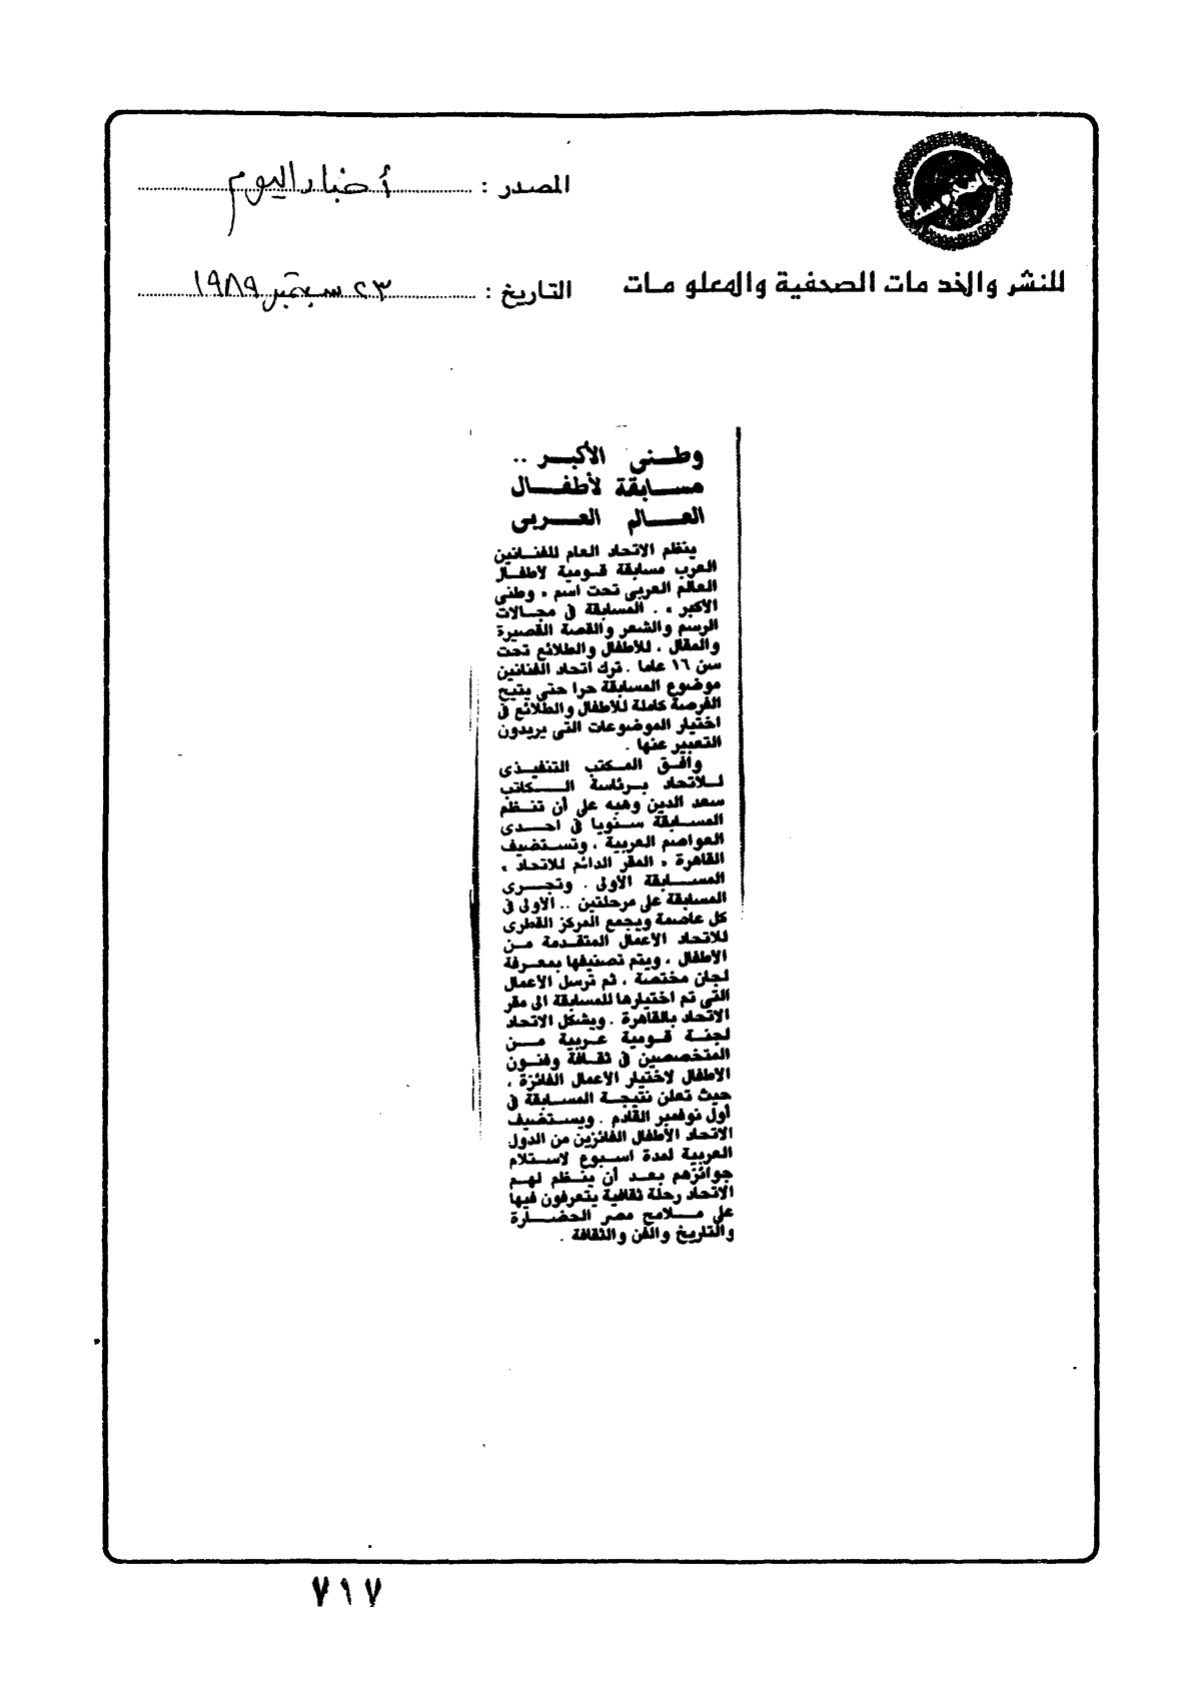 المصدر : أخبار اليوم
للنشر والخدمات الصحفية والمعلومات
التاريخ : ٢٣ سبتمبر ١٩٨٩
وطنى الأكبر ..
مسابقة لأطفال
العالم العربى
ينظم الاتحاد العام للفنانين
العرب مسابقة قومية لاطفال
العالم العربى تحت اسم « وطنى
الأكبر » . المسابقة فى مجالات
الرسم والشعر والقصة القصيرة
والمقال ، للأطفال والطلائع تحت
سن ١٦ عاما . ترك اتحاد الفنانين
موضوع المسابقة حرا حتى يتيح
الفرصة كاملة للأطفال والطلائع فى
اختيار الموضوعات التى يريدون
التعبير عنها .
وافق المكتب التنفيذى
للاتحاد برئاسة الكاتب
سعد الدين وهبه على أن تنظم
المسابقة سنويا فى احدى
العواصم العربية ، وتستضيف
القاهرة « المقر الدائم للاتحاد »
المسابقة الأولى . وتجرى
المسابقة على مرحلتين .. الأولى فى
كل عاصمة ويجمع المركز القطرى
للاتحاد الأعمال المتقدمة من
الأطفال ، ويتم تصنيفها بمعرفة
لجان مختصة ، ثم ترسل الأعمال
التى تم اختيارها للمسابقة الى مقر
الاتحاد بالقاهرة . ويشكل الاتحاد
لجنة قومية عربية من
المتخصصين فى ثقافة وفنون
الأطفال لاختيار الأعمال الفائزة ،
حيث تعلن نتيجة المسابقة فى
أول نوفمبر القادم . ويستضيف
الاتحاد الأطفال الفائزين من الدول
العربية لمدة اسبوع لاستلام
جوائزهم بعد أن ينظم لهم
الاتحاد رحلة ثقافية يتعرفون فيها
على ملامح مصر الحضارة
والتاريخ والفن والثقافة .
٧١٧